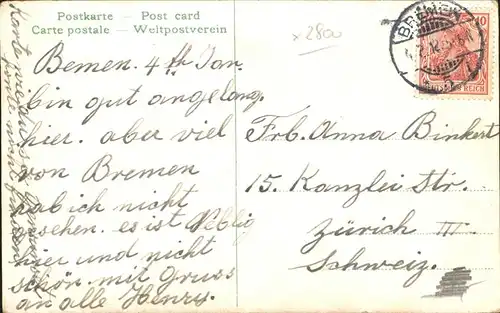 Postkarte – Post card
Carte postale – Weltpostverein
x28a
BREMEN
10
Bemen. 4th Jan.
bin gut angelang.
hier. aber viel
von Bremen
hab ich nicht
gesehen. es ist Neblig
hier und nicht
schön. mit Gruss
an alle Henry.
Frb. Anna Binkert
15. Kanzlei Str.
Zürich III
Schweiz.